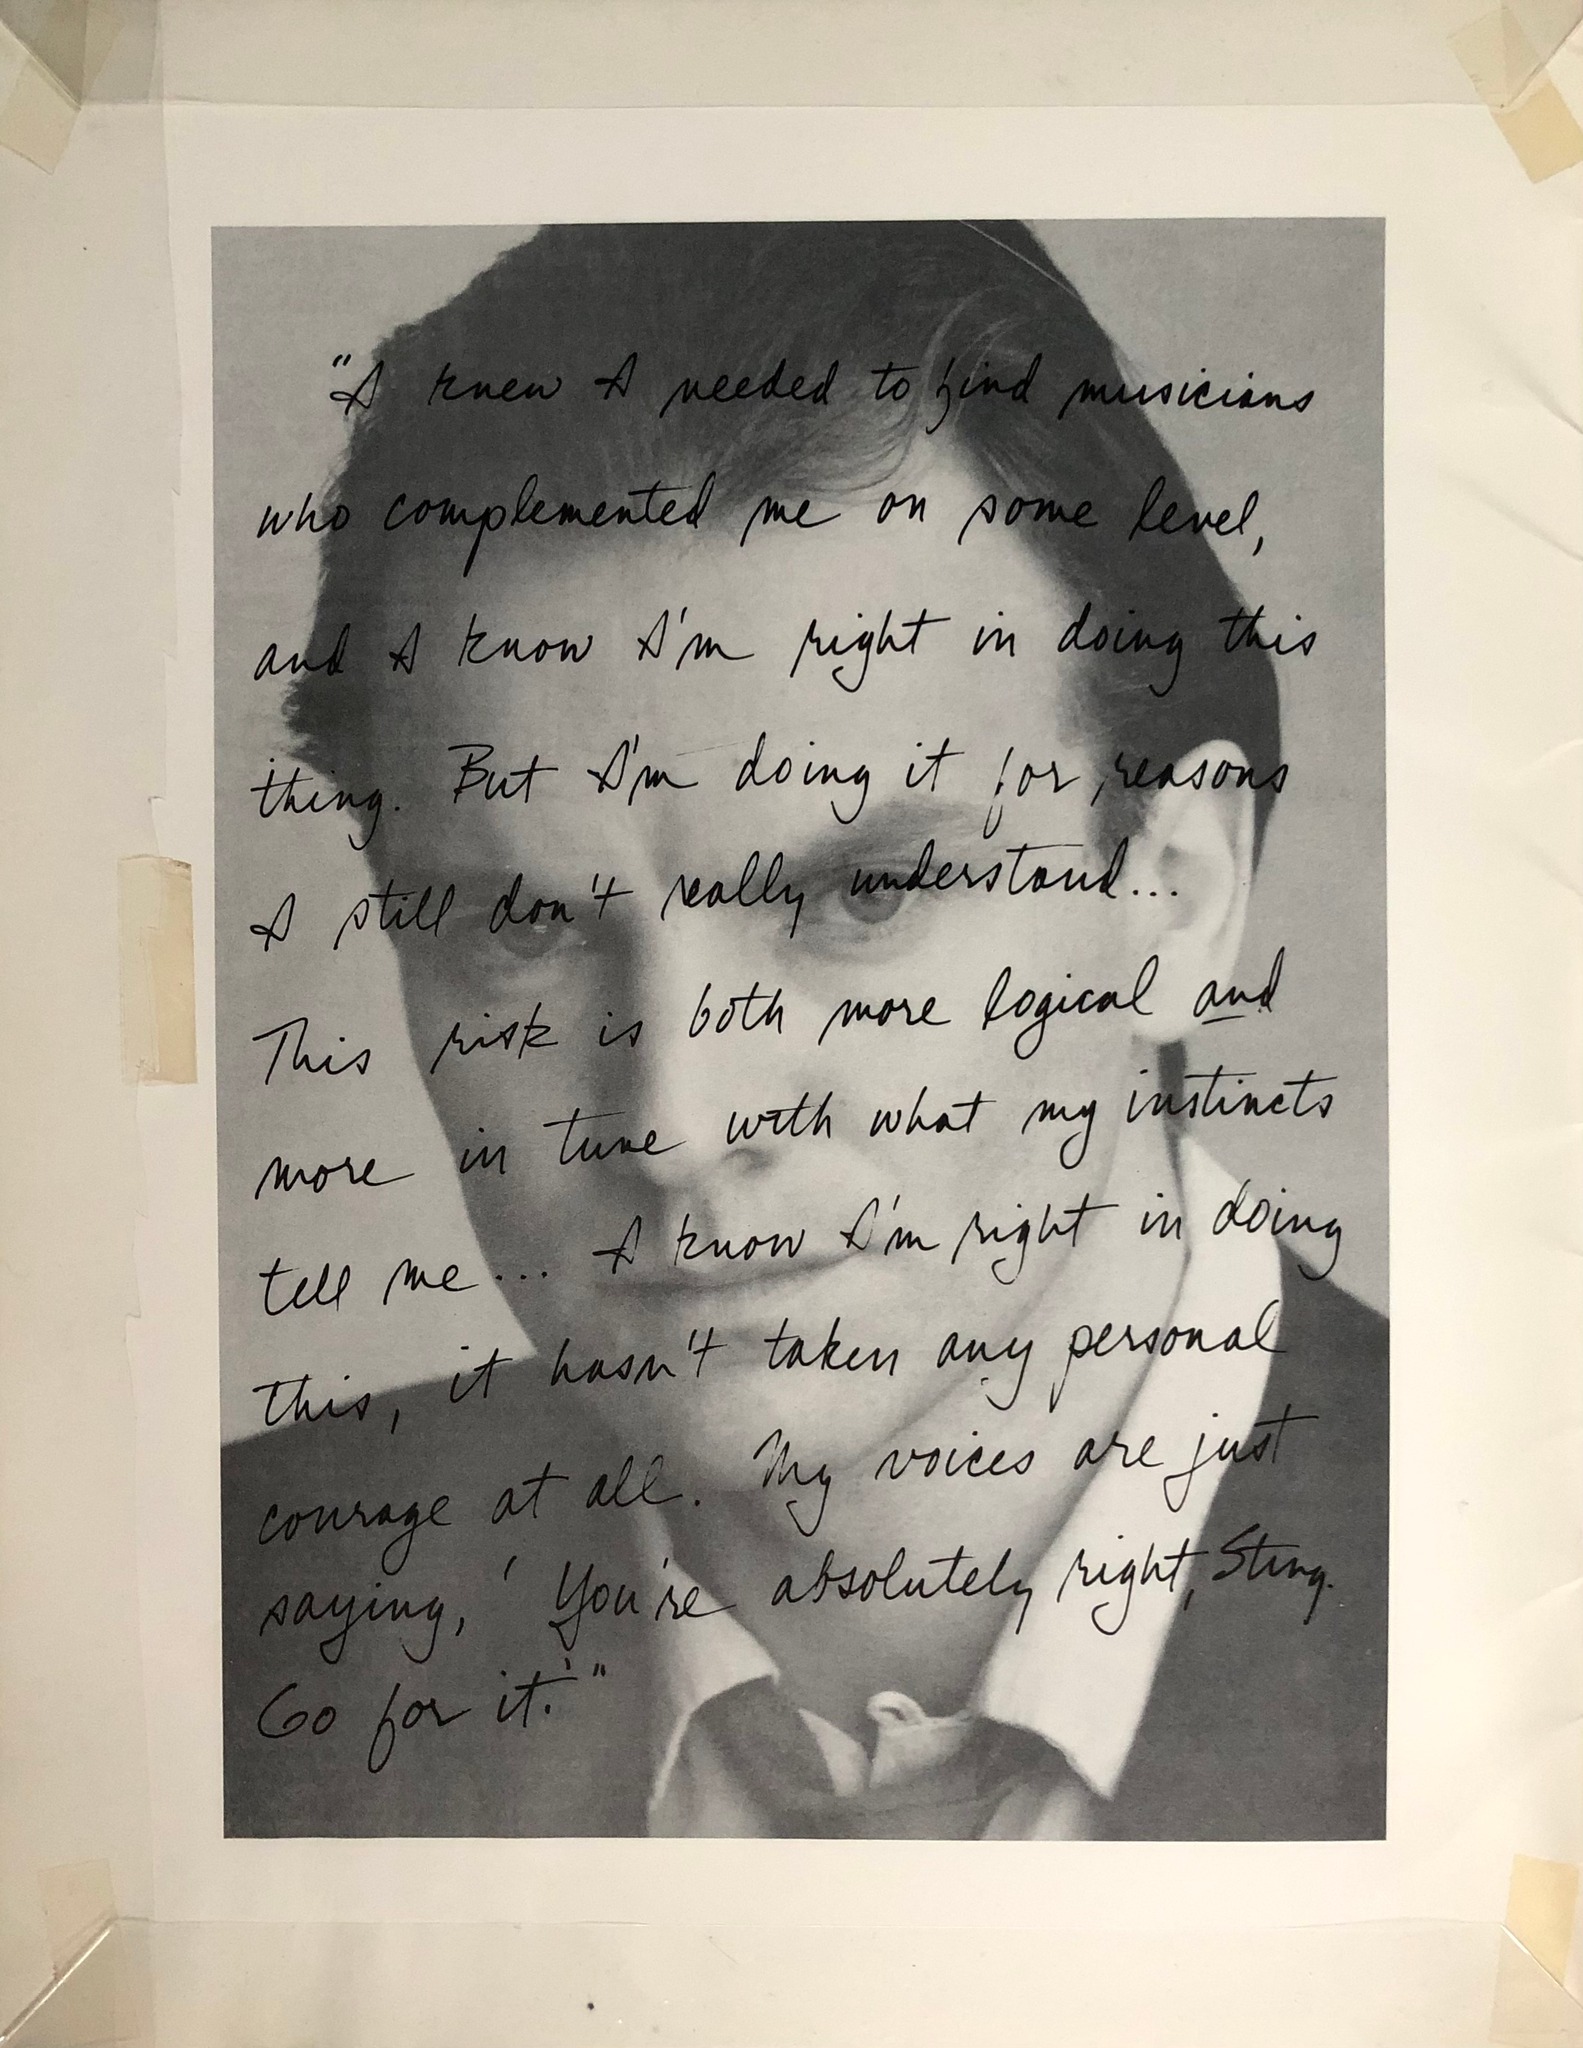 "I knew I needed to find musicians
who complemented me on some level,
and I know I'm right in doing this
thing. But I'm doing it for reasons
I still don't really understand...
This risk is both more logical and
more in tune with what my instincts
tell me... I know I'm right in doing
this, it hasn't taken any personal
courage at all. My voices are just
saying, 'You're absolutely right, Sting.
Go for it.'"